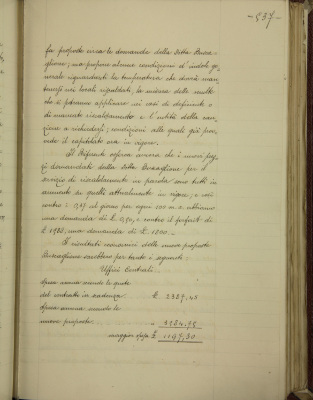 -537-
fa proposte circa le domande della Ditta Busca-
glione; ma propone alcune condizioni d'indole ge-
nerale riguardanti la temperatura che dovrà man-
tenersi nei locali riscaldati, la misura delle multe
che si potranno applicare nei casi di deficiente o
di mancato riscaldamento e l'entità della cau-
zione a richiedersi; condizioni alle quali già pro-
vede il capitolato ora in vigore.
Il Riferente osserva ancora che i nuovi prez-
zi domandati dalla Ditta Buscaglione per il
servizio di riscaldamento in parola sono tutti in
aumento su quelli attualmente in vigore; e così
contro £ 0,67 al giorno per ogni 100 m.c. abbiamo
una domanda di £ 0,70, e contro il forfait di
£ 1900, una domanda di £. 1800.-
I risultati economici delle nuove proposte
Buscaglione sarebbero per tanto i seguenti:
Uffici Centrali.
Spesa annua avendo le quote
del contratto in scadenza £ 2387,45
Spesa annua secondo le
nuove proposte " 1184,75
maggior spesa £ 1197,30